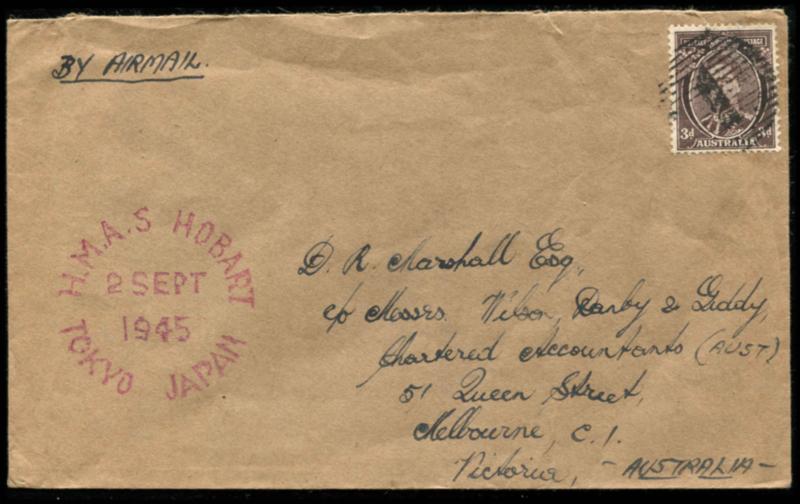 BY AIRMAIL.
POSTAGE
3d
AUSTRALIA
H.M.A.S HOBART
2 SEPT
1945
TOKYO JAPAN
D. R. Marshall Esq.,
c/o Messrs. Wilson, Danby & Giddy,
Chartered Accountants (AUST)
51 Queen Street,
Melbourne, C.1.
Victoria, - AUSTRALIA -